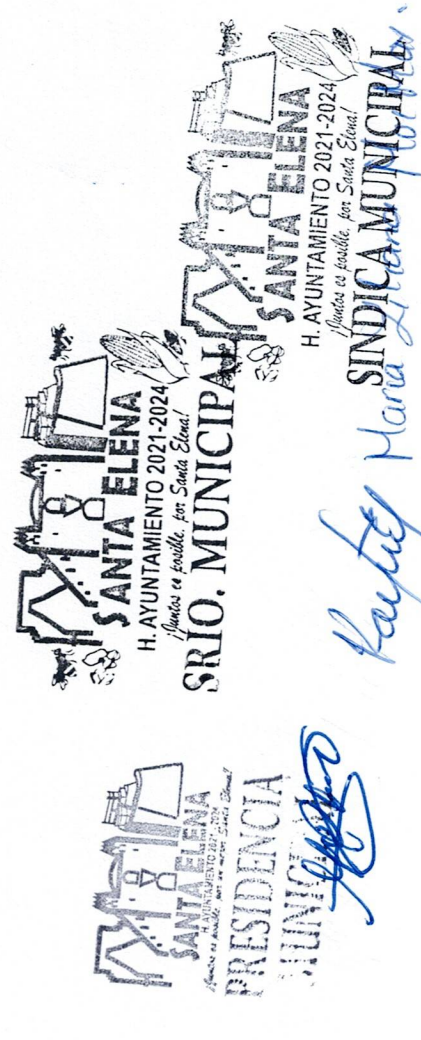 SANTA ELENA
H. AYUNTAMIENTO 2021-2024
¡Juntos es posible, por Santa Elena!
PRESIDENCIA
MUNICI
SANTA ELENA
H. AYUNTAMIENTO 2021-2024
¡Juntos es posible, por Santa Elena!
SRIO. MUNICIPAL
SANTA ELENA
H. AYUNTAMIENTO 2021-2024
¡Juntos es posible, por Santa Elena!
SINDICA MUNICIPAL
Maria